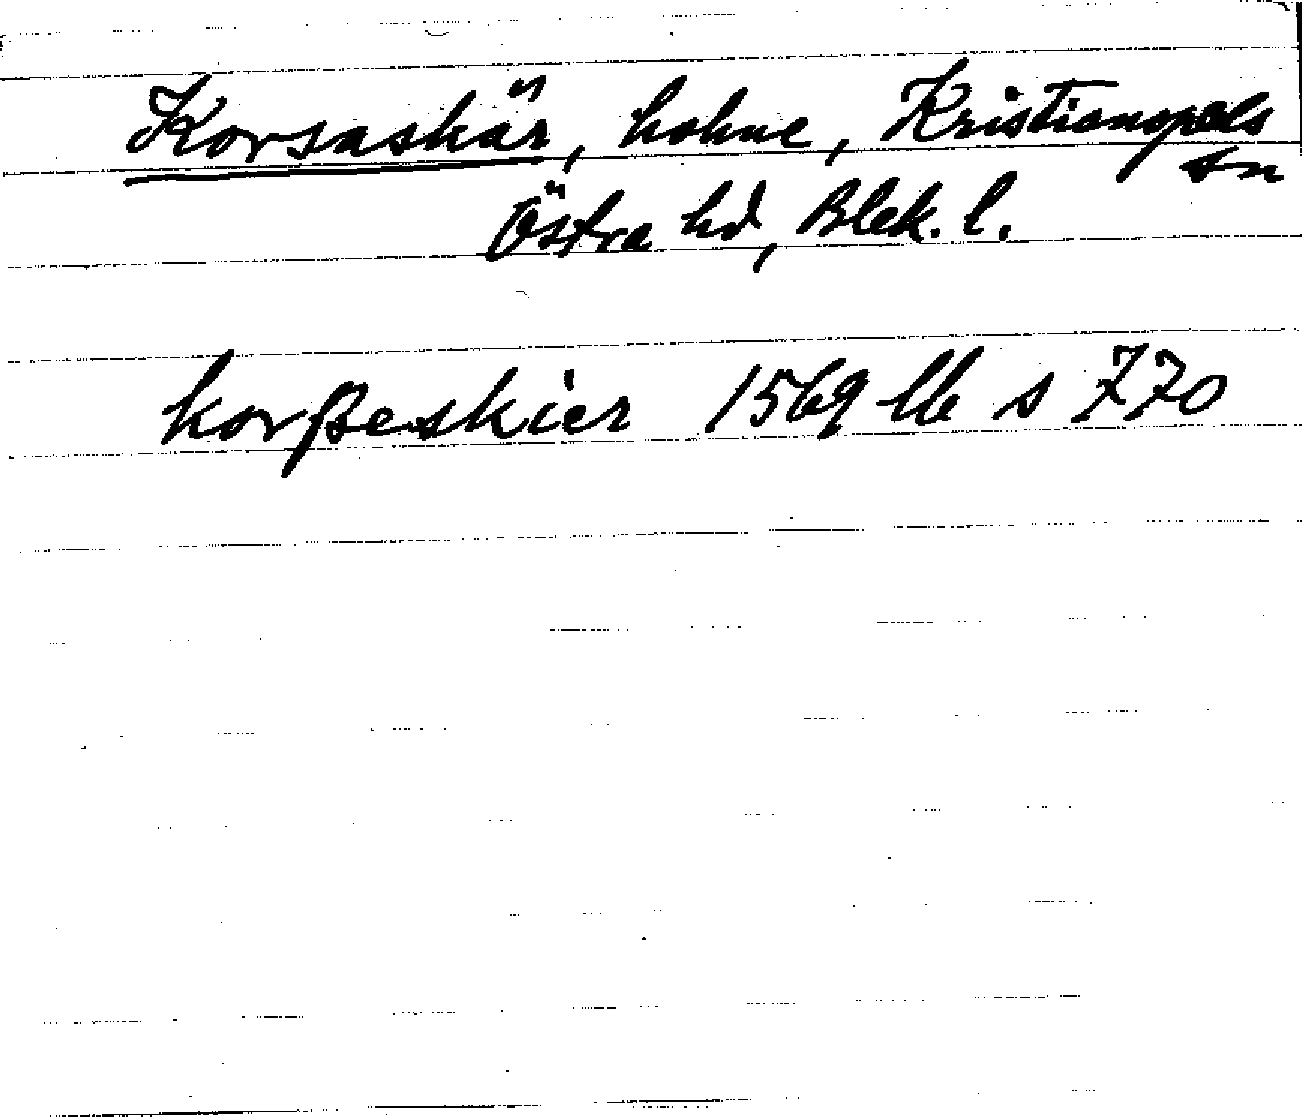 Korsaskär, holme, Kristianopels
sn
Östra hd, Blek. l.
korßeskier 1569 lb s 770